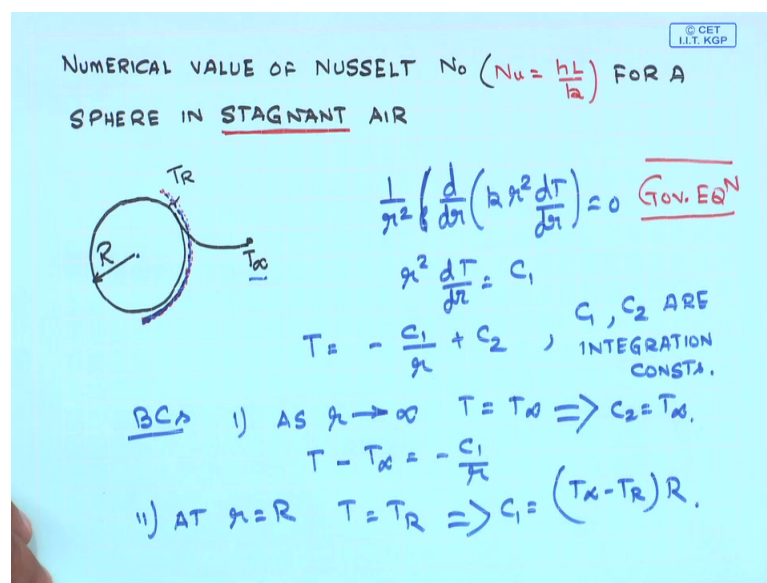 © CET
I.I.T. KGP
NUMERICAL VALUE OF NUSSELT No (Nu = hL/k) FOR A
SPHERE IN STAGNANT AIR
TR
R
T∞
1/r² ( d/dr (k r² dT/dr) = 0 GOV. EQN
r² dT/dr = C1
T = - C1/r + C2 , C1, C2 ARE
INTEGRATION
CONSTS.
BCs 1) AS r → ∞ T = T∞ => C2 = T∞.
T - T∞ = - C1/r
11) AT r = R T = TR => C1 = (T∞ - TR) R.